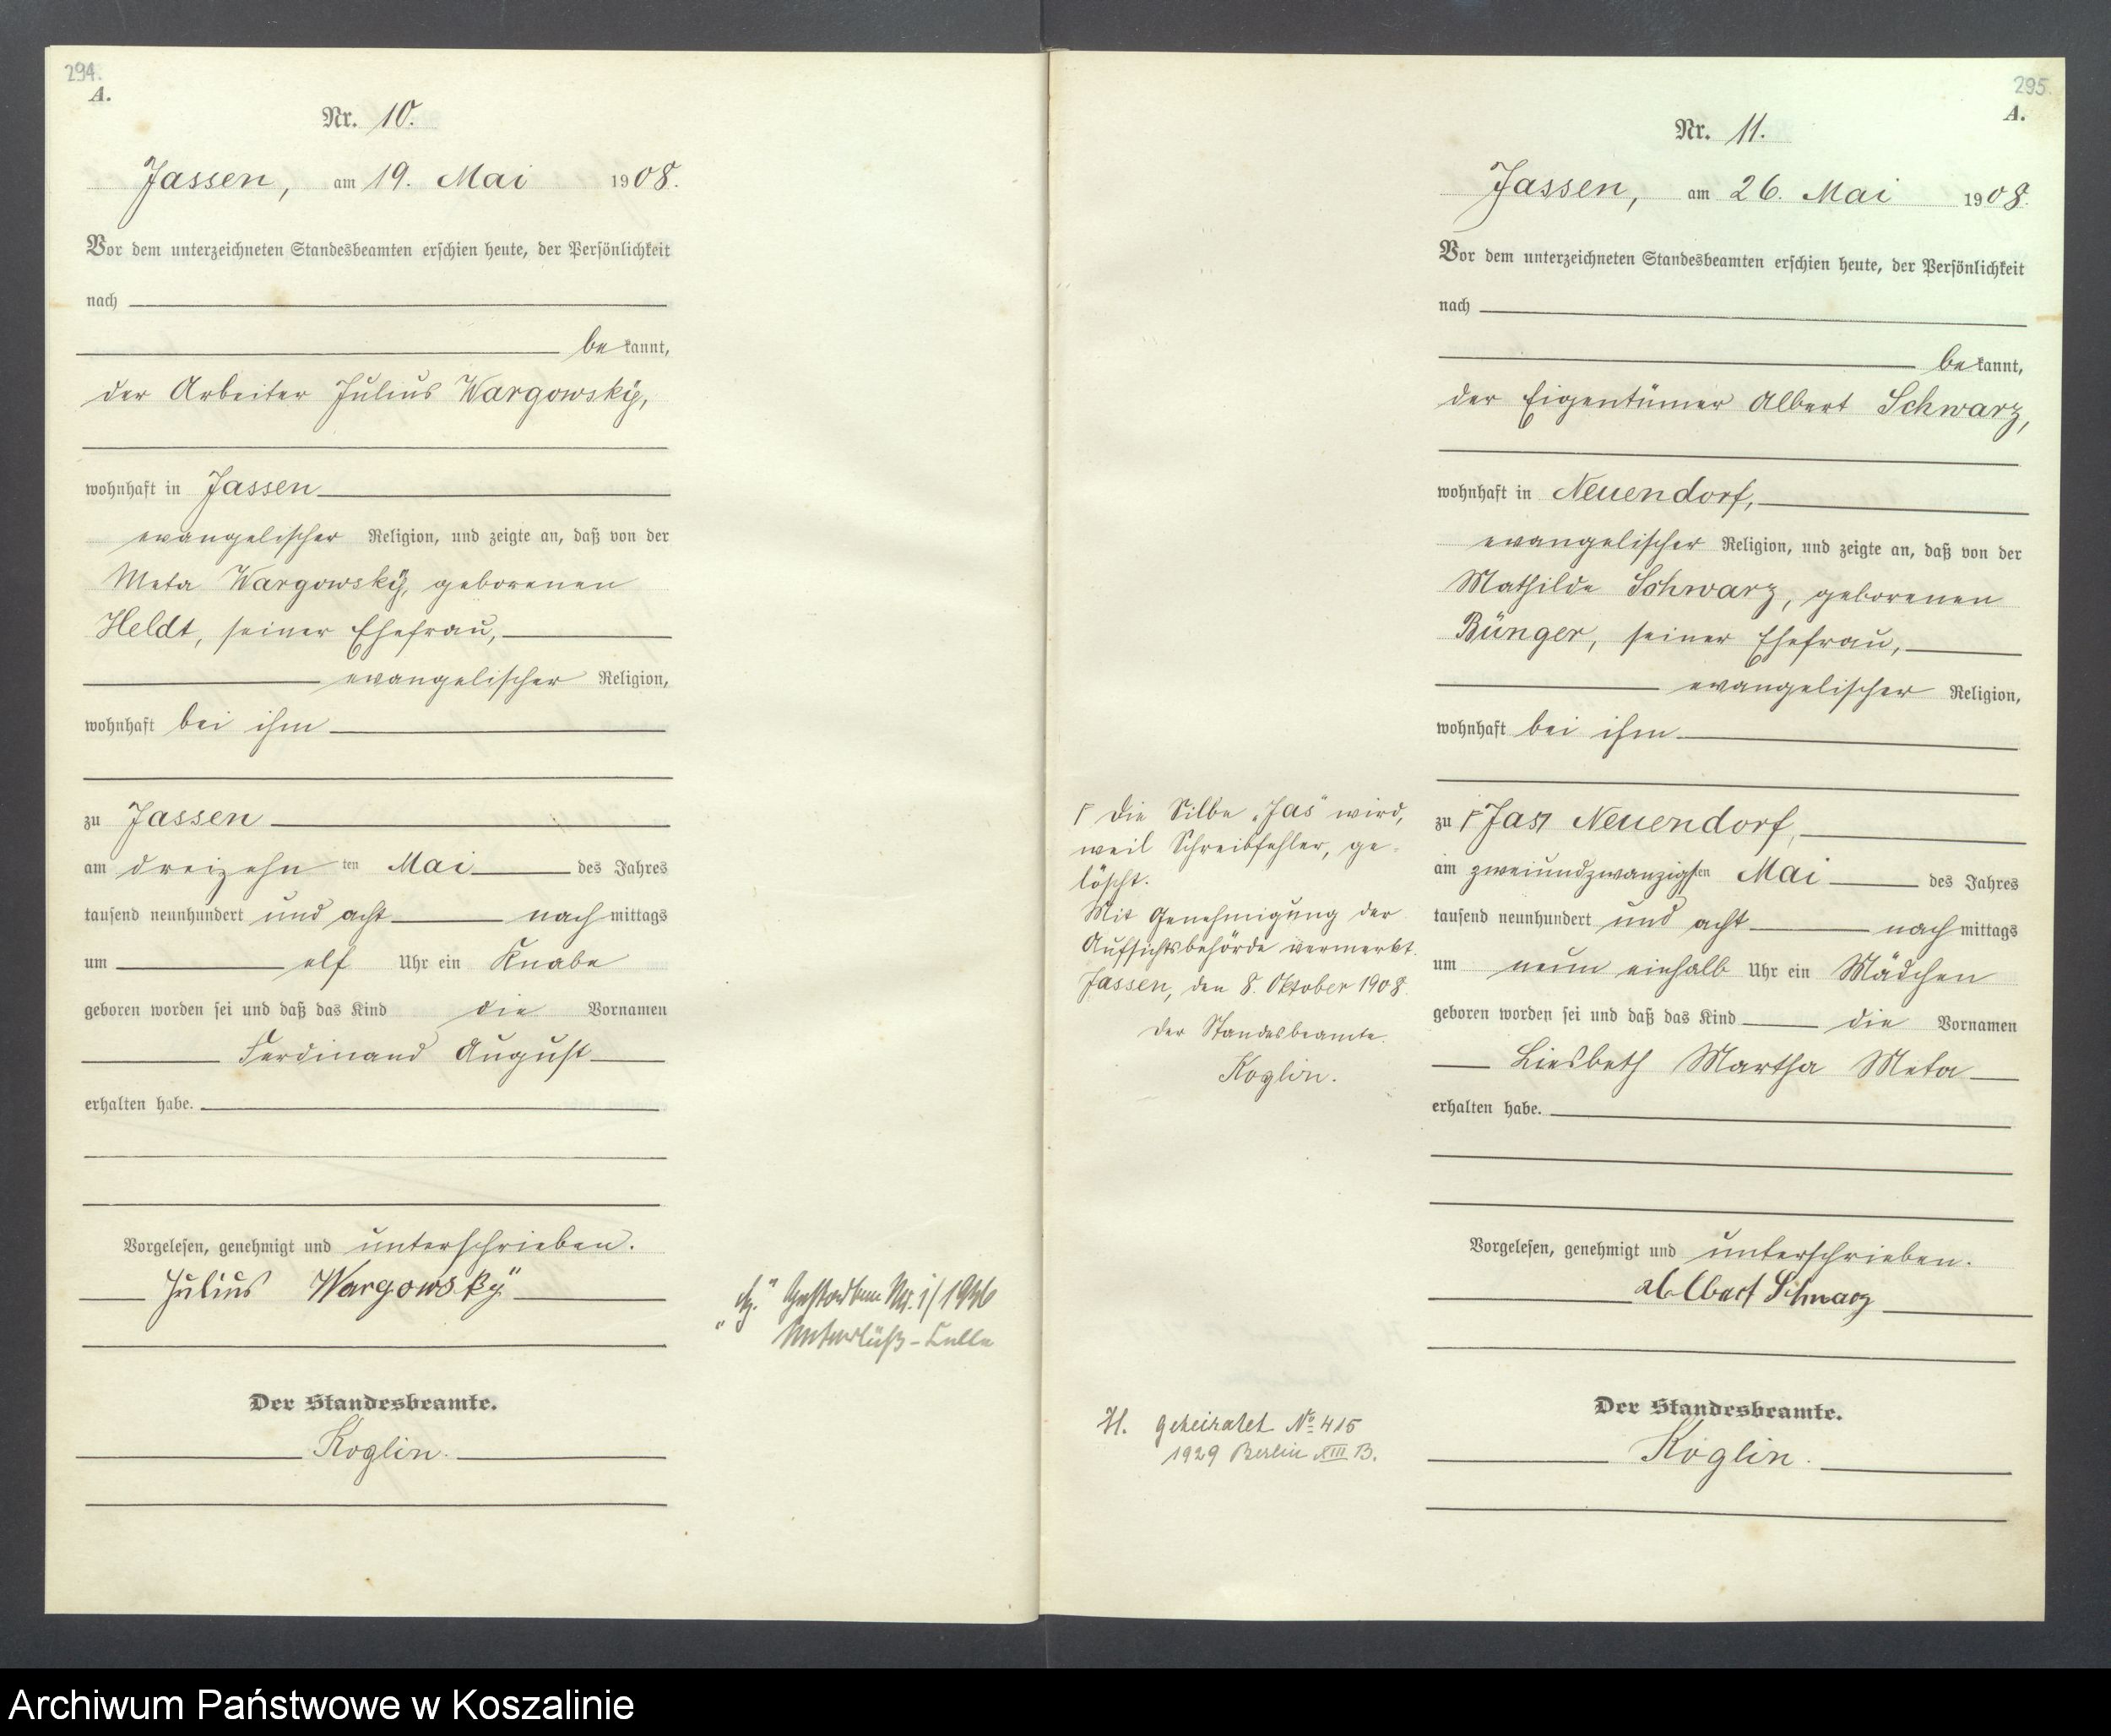 294.
A.
Nr. 10.
Jassen, am 19. Mai 1908.
Vor dem unterzeichneten Standesbeamten erschien heute, der Persönlichkeit
nach
be kannt,
der Arbeiter Julius Wargowsky,
wohnhaft in Jassen
evangelischer Religion, und zeigte an, daß von der
Meta Wargowsky, geborenen
Heldt, seiner Ehefrau,
evangelischer Religion,
wohnhaft bei ihm
zu Jassen
am dreizehn ten Mai des Jahres
tausend neunhundert und acht nach mittags
um elf Uhr ein Knabe
geboren worden sei und daß das Kind die Vornamen
Ferdinand August
erhalten habe.
Vorgelesen, genehmigt und unterschrieben.
Julius Wargowsky
Der Standesbeamte.
Koglin.
Gestorben Nr. 1/1936
Unterlüß-Celle
295.
A.
Nr. 11.
Jassen, am 26. Mai 1908.
Vor dem unterzeichneten Standesbeamten erschien heute, der Persönlichkeit
nach
be kannt,
der Eigentümer Albert Schwarz,
wohnhaft in Neuendorf,
evangelischer Religion, und zeigte an, daß von der
Mathilde Schwarz, geborenen
Bünger, seiner Ehefrau,
evangelischer Religion,
wohnhaft bei ihm
zu Γ Jas ┐ Neuendorf,
am zweiundzwanzigsten Mai des Jahres
tausend neunhundert und acht nach mittags
um neun einhalb Uhr ein Mädchen
geboren worden sei und daß das Kind die Vornamen
Liesbeth Martha Meta
erhalten habe.
Vorgelesen, genehmigt und unterschrieben.
Albert Schwarz
Der Standesbeamte.
Koglin.
Γ Die Silbe „Jas" wird,
weil Schreibfehler, ge-
löscht.
Mit Genehmigung der
Aufsichtsbehörde vermerkt.
Jassen, den 8. Oktober 1908.
Der Standesbeamte.
Koglin.
H. geheiratet No 415
1929 Berlin XIII B.
Archiwum Państwowe w Koszalinie